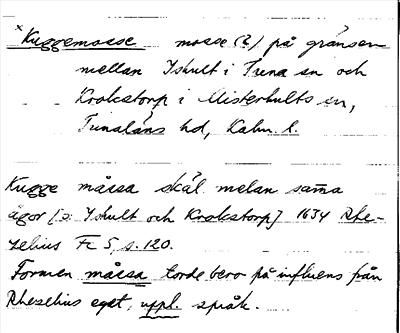 x Kuggemosse mosse (?) på gränsen
mellan Ishult i Tuna sn och
Krokstorp i Misterhults sn,
Tunaläns hd, Kalm. l.
Kugge måssa skäl melan sama
ägor [o: Ishult och Krokstorp] 1634 Rhe-
zelius Fc 5, s. 120.
Formen måssa torde bero på influens från
Rhezelius eget, uppl. språk.